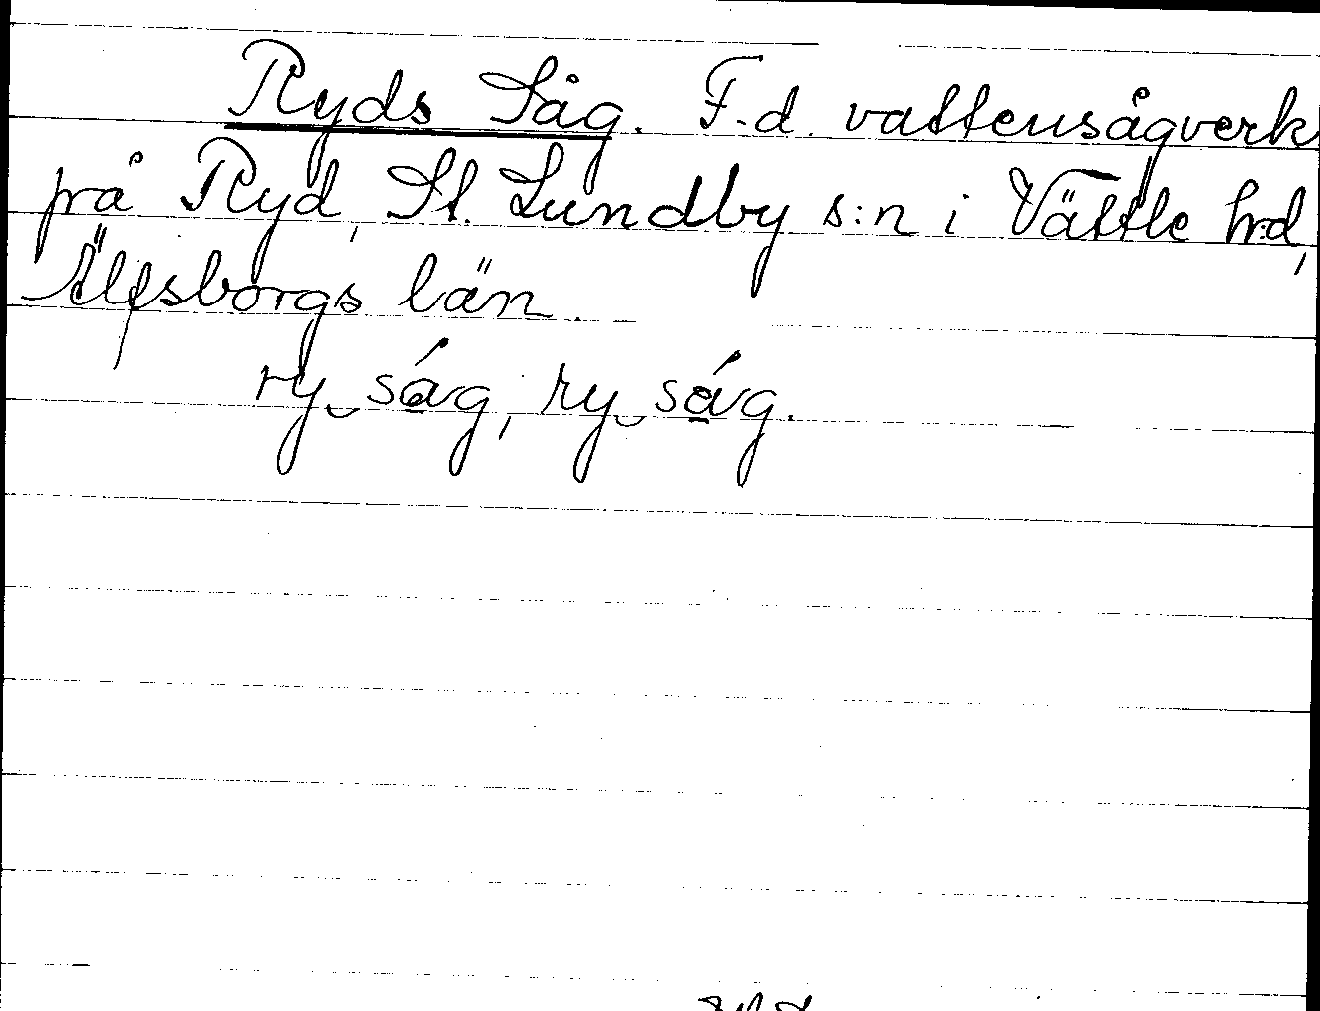 Ryds Såg. F.d. vattensågverk
på Ryd, St. Lundby s:n i Vättle hd,
Älfsborgs län.
ry ság, ry ság.